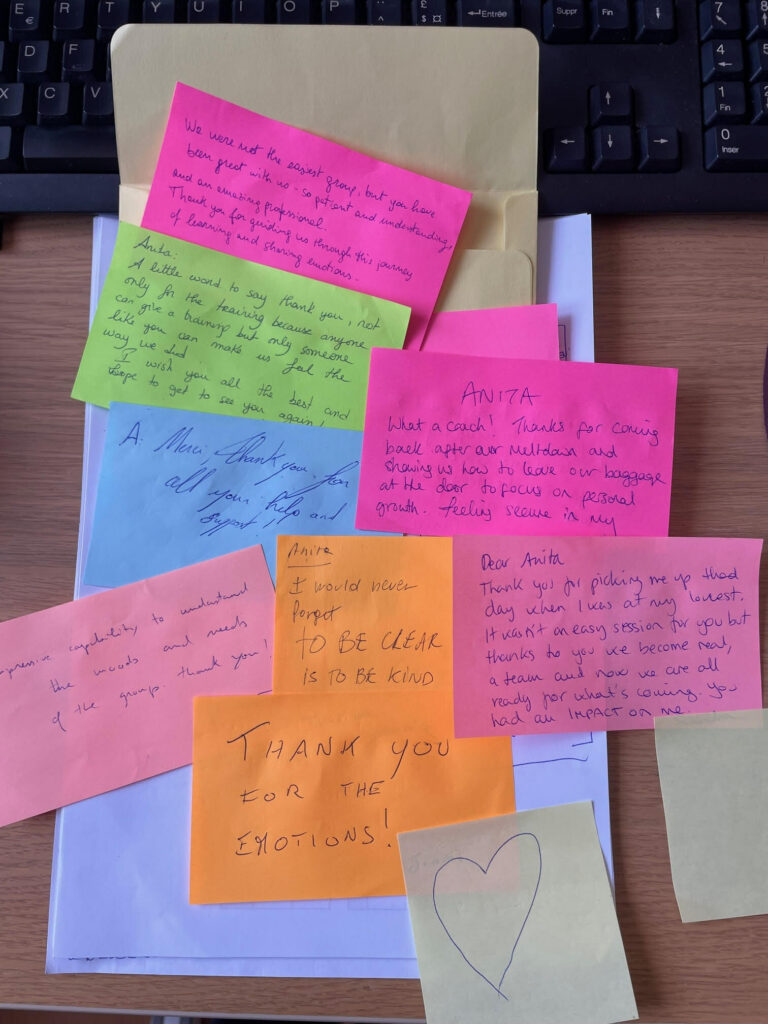 E R T Y U I O P
€
£
$ ¤
Entrée
Suppr Fin ↓
7
8
D F
4
←
5
X C V
↑
1
Fin
2
← ↓ →
0
Inser
We were not the easiest group, but you have
been great with us - so patient and understanding,
and an amazing professional.
Thank you for guiding us through this journey
of learning and sharing emotions.
Anita:
A little word to say thank you, not
only for the training because anyone
can give a training but only someone
like you can make us feel the
way we did
I wish you all the best and
hope to get to see you again!
ANITA
What a coach! Thanks for coming
back after our meltdown and
showing us how to leave our baggage
at the door to focus on personal
growth. Feeling secure in my
A. Merci, thank you for
all your help and
support!
Anita
I would never
forget
TO BE CLEAR
IS TO BE KIND
Dear Anita
Thank you for picking me up that
day when I was at my lowest.
It wasn't an easy session for you but
thanks to you we become real,
a team and now we are all
ready for what's coming. You
had an IMPACT on me.
capability to understand
the moods and needs
of the group. thank you!
THANK YOU
FOR THE
EMOTIONS!